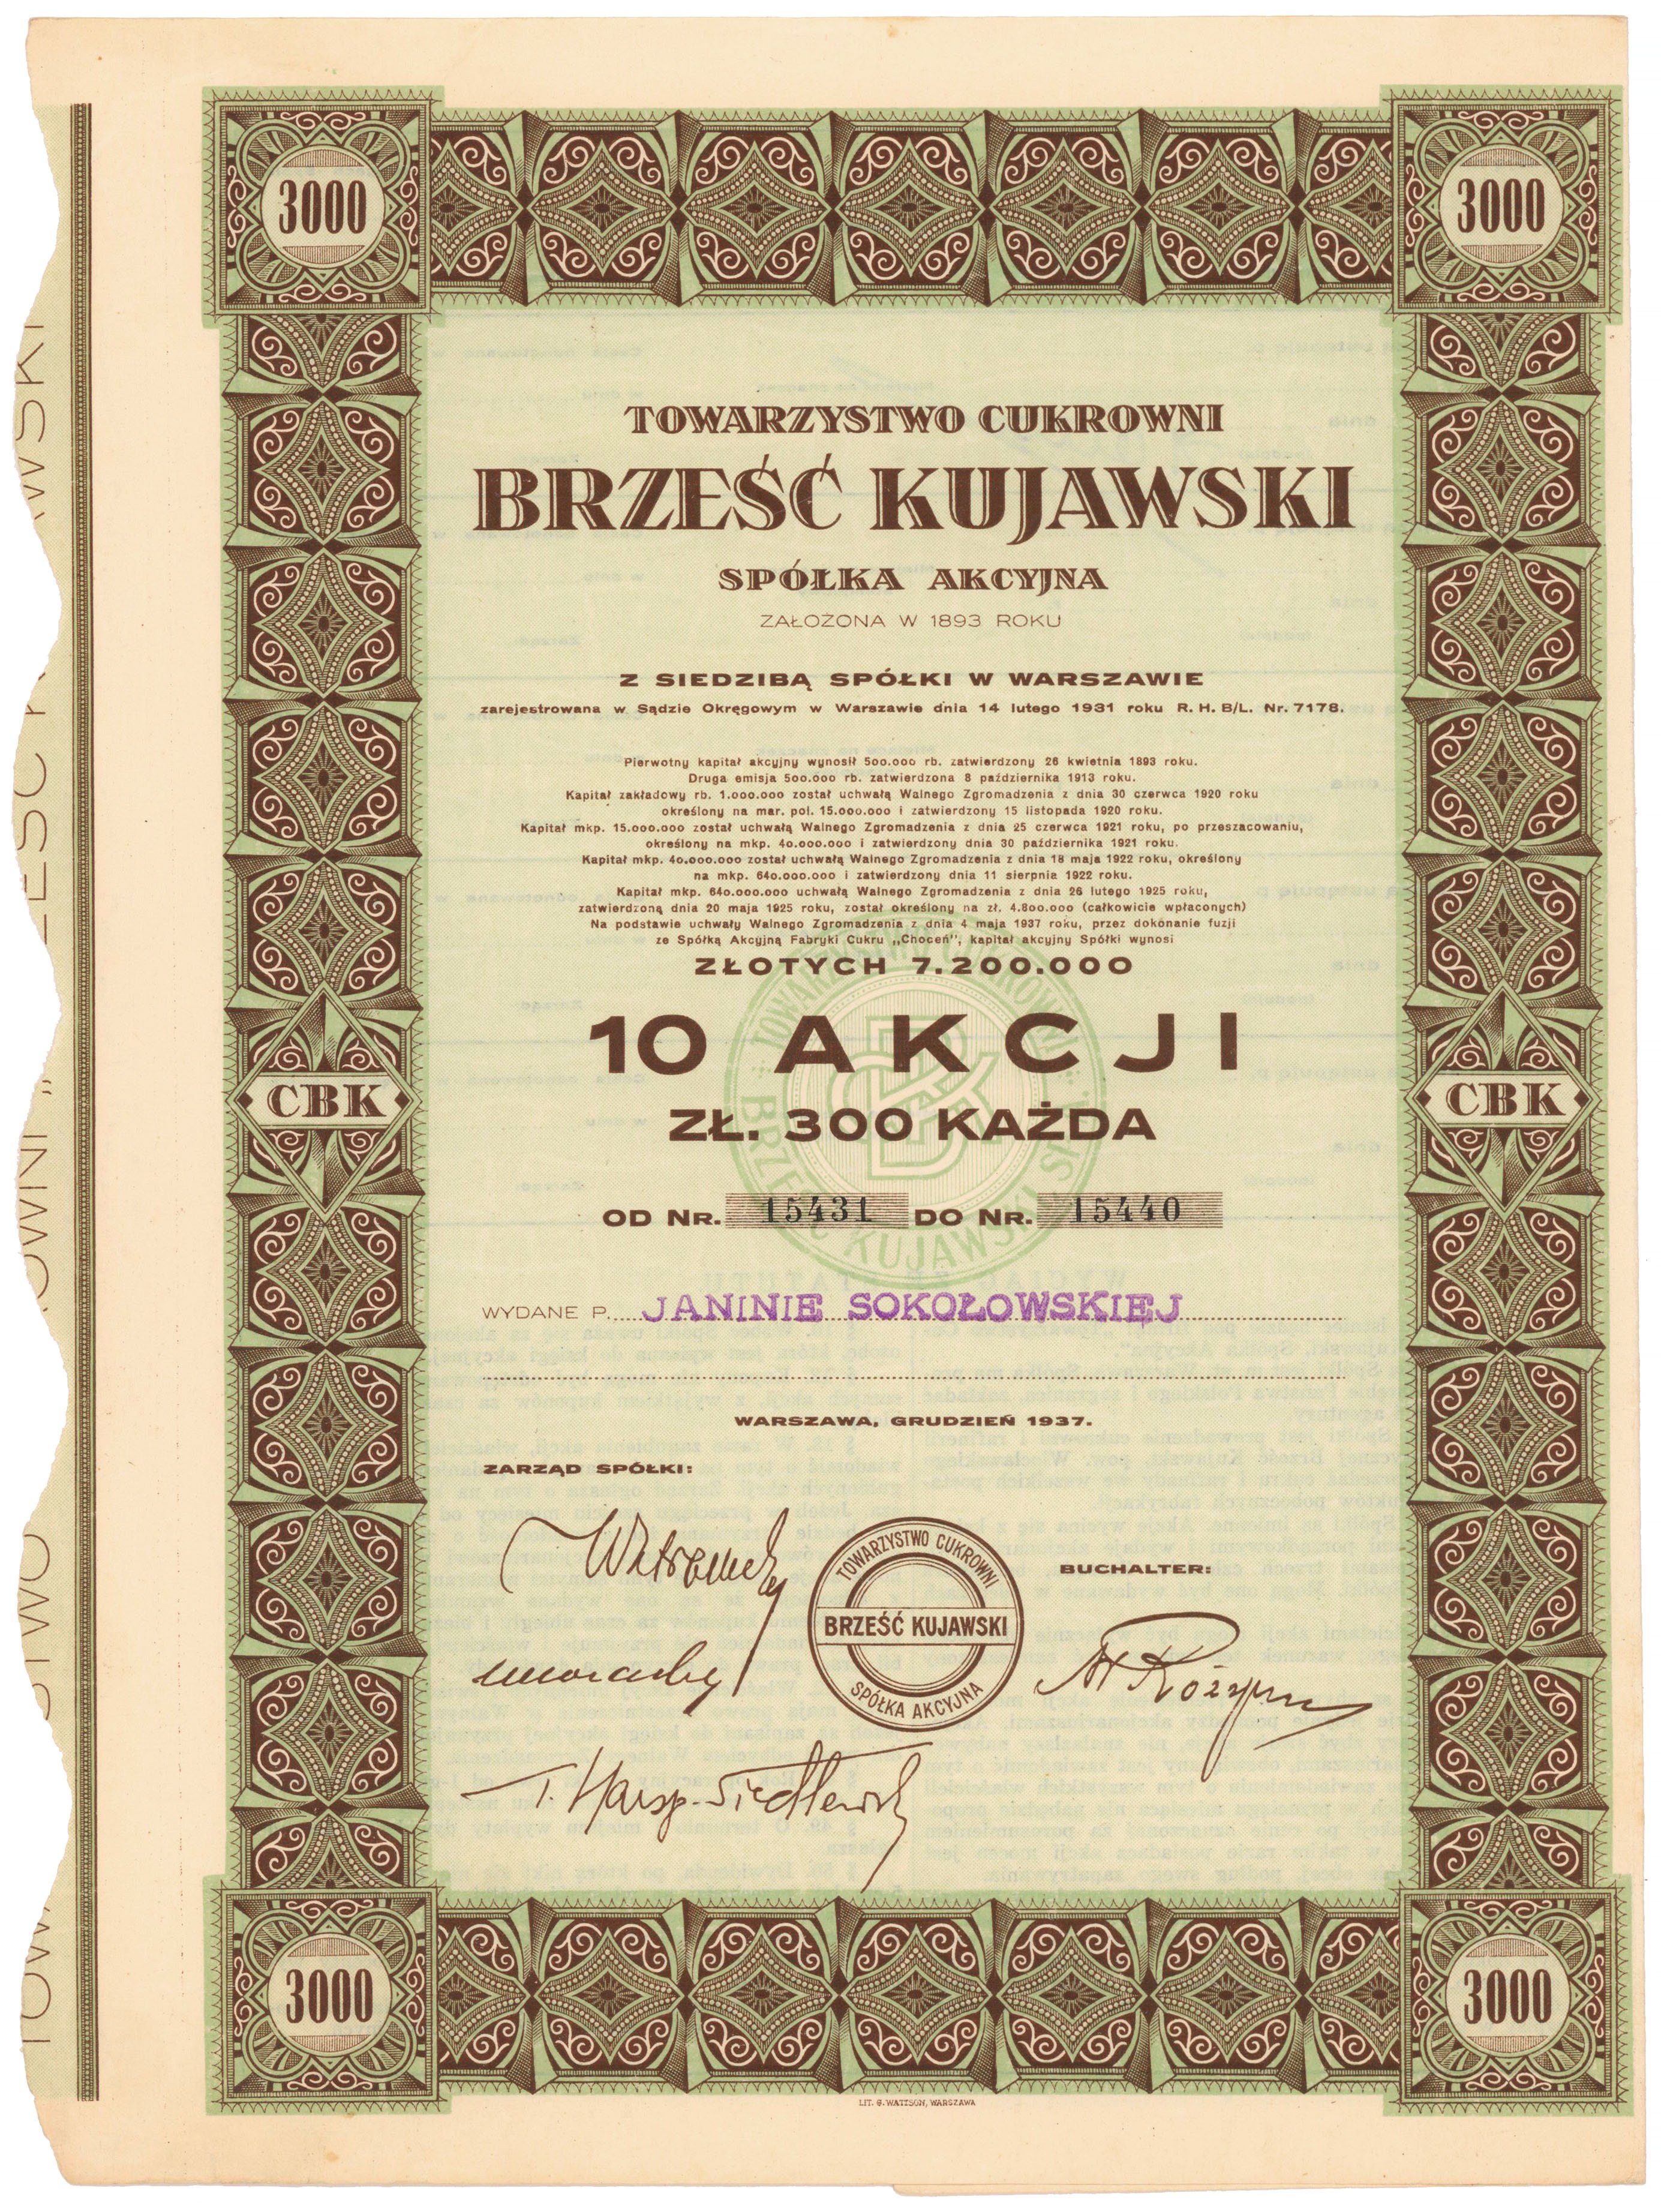 3000
3000
TOWARZYSTWO CUKROWNI
BRZEŚĆ KUJAWSKI
SPÓŁKA AKCYJNA
ZAŁOŻONA W 1893 ROKU
Z SIEDZIBĄ SPÓŁKI W WARSZAWIE
zarejestrowana w Sądzie Okręgowym w Warszawie dnia 14 lutego 1931 roku R. H. B/L. Nr. 7178.
Pierwotny kapitał akcyjny wynosił 500.000 rb. zatwierdzony 26 kwietnia 1893 roku.
Druga emisja 500.000 rb. zatwierdzona 8 października 1913 roku.
Kapitał zakładowy rb. 1.000.000 został uchwałą Walnego Zgromadzenia z dnia 30 czerwca 1920 roku
określony na mar. pol. 15.000.000 i zatwierdzony 15 listopada 1920 roku.
Kapitał mkp. 15.000.000 został uchwałą Walnego Zgromadzenia z dnia 25 czerwca 1921 roku, po przeszacowaniu,
określony na mkp. 40.000.000 i zatwierdzony dnia 30 października 1921 roku.
Kapitał mkp. 40.000.000 został uchwałą Walnego Zgromadzenia z dnia 18 maja 1922 roku, określony
na mkp. 640.000.000 i zatwierdzony dnia 11 sierpnia 1922 roku.
Kapitał mkp. 640.000.000 uchwałą Walnego Zgromadzenia z dnia 26 lutego 1925 roku,
zatwierdzoną dnia 20 maja 1925 roku, został określony na zł. 4.800.000 (całkowicie wpłaconych)
Na podstawie uchwały Walnego Zgromadzenia z dnia 4 maja 1937 roku, przez dokonanie fuzji
ze Spółką Akcyjną Fabryki Cukru „Choceń", kapitał akcyjny Spółki wynosi
ZŁOTYCH 7.200.000
10 AKCJI
CBK
CBK
ZŁ. 300 KAŻDA
OD NR. 15431 DO NR. 15440
WYDANE P. JANINIE SOKOŁOWSKIEJ
WARSZAWA, GRUDZIEŃ 1937.
ZARZĄD SPÓŁKI:
TOWARZYSTWO CUKROWNI
BRZEŚĆ KUJAWSKI
SPÓŁKA AKCYJNA
BUCHALTER:
3000
3000
LIT. B. WATTSON, WARSZAWA